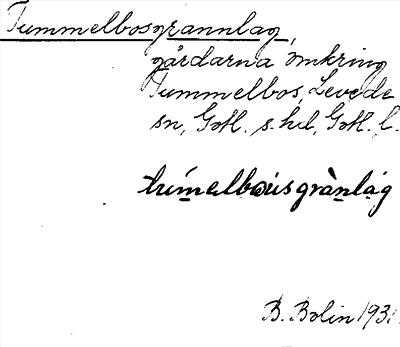 Tummelbosgrannlag,
gårdarna omkring
Tummelbos, Levede
sn, Gotl. s. hd, Gotl. l.
tùmelbousgrànlág
B. Bolin 193